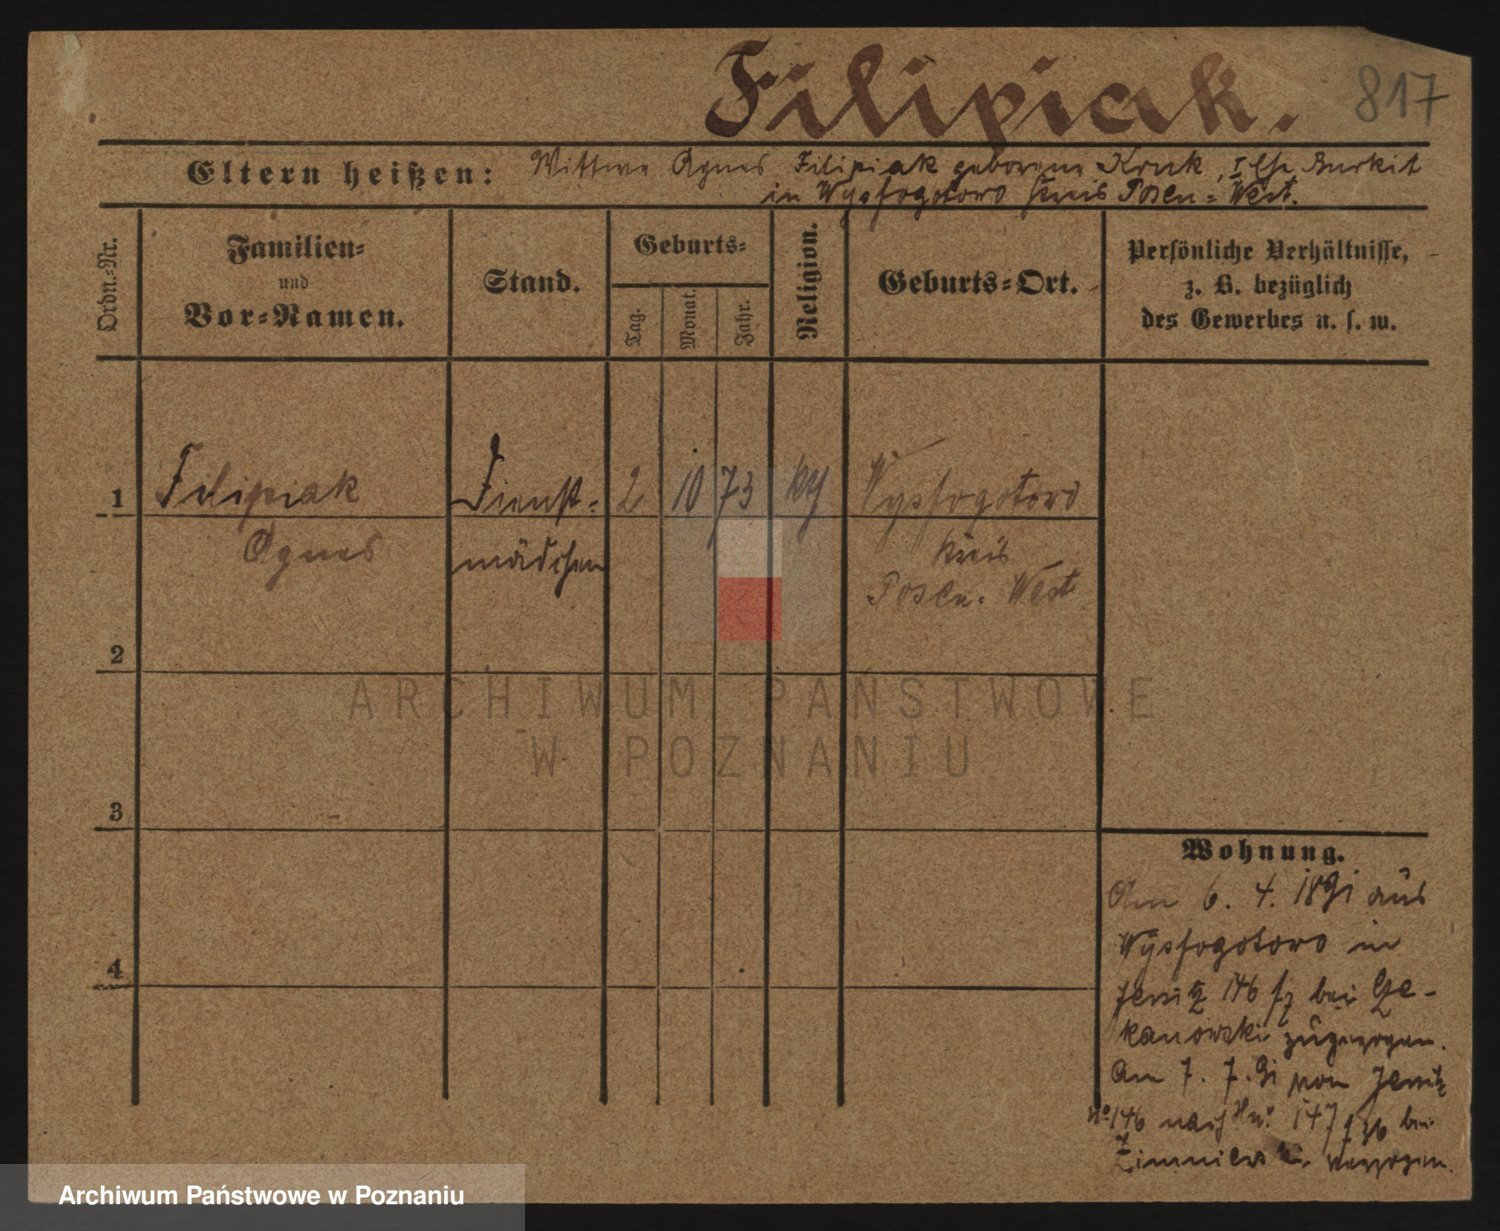 Filipiak.
817
Eltern heißen: Wittwe Agnes Filipiak geborene Kruk,
in Wyssogotowo Kreis Posen=West.
Ordn.-Nr.
Familien=
und
Vor=Namen.
Stand.
Geburts=
Tag.
Monat.
Jahr.
Religion.
Geburts=Ort.
Persönliche Verhältnisse,
z. B. bezüglich
des Gewerbes u. s. w.
1 Filipiak Dienst= 2 10 73 Wyssogotowo
Agnes mädchen Kreis
Posen-West
2
3
4
Wohnung.
Am 6. 4. 1891 aus
Wyssogotowo in
Jersitz 146 bei
zugezogen.
Am 7. 7. 91 von Jersitz
No 146 nach No. 147 bei
verzogen.
ARCHIWUM PAŃSTWOWE
W POZNANIU
Archiwum Państwowe w Poznaniu